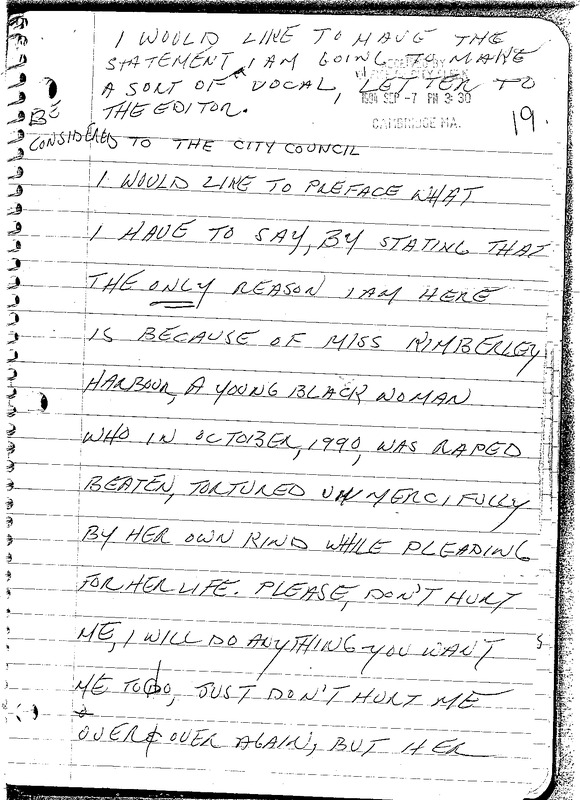 I WOULD LIKE TO HAVE THE
STATEMENT, I AM GOING TO MAKE
A SORT OF VOCAL, LETTER TO
THE EDITOR.
RECEIVED BY
CITY CLERK
1994 SEP -7 PM 3:30
CAMBRIDGE MA.
19.
BE
CONSIDERED TO THE CITY COUNCIL
I WOULD LIKE TO PREFACE WHAT
I HAVE TO SAY, BY STATING THAT
THE ONLY REASON I AM HERE
IS BECAUSE OF MISS KIMBERLEY
HARBOUR, A YOUNG BLACK WOMAN
WHO IN OCTOBER, 1990, WAS RAPED
BEATEN, TORTURED UNMERCIFULLY
BY HER OWN KIND WHILE PLEADING
FOR HER LIFE. PLEASE, DON'T HURT
ME, I WILL DO ANYTHING YOU WANT
ME TO DO, JUST DON'T HURT ME
OVER & OVER AGAIN, BUT HER